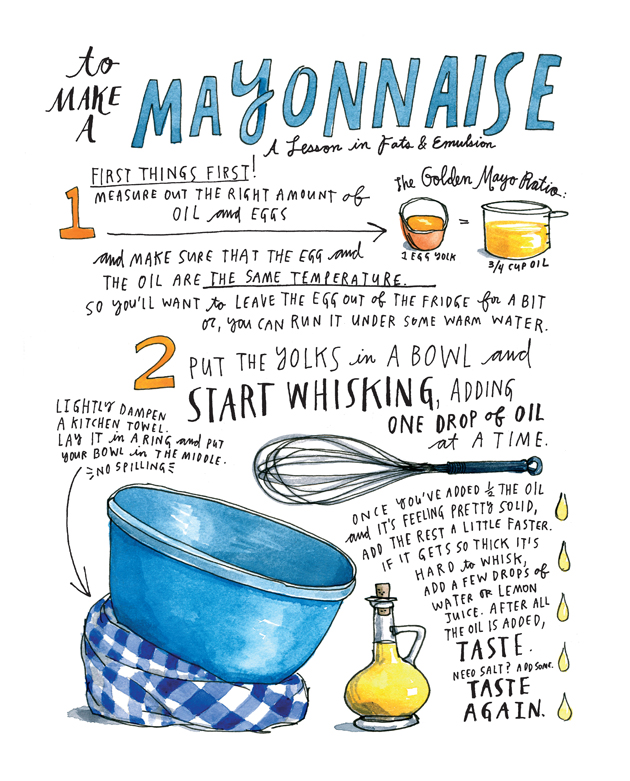 to
MAKE
A
MAYONNAISE
A Lesson in Fats & Emulsion
1
FIRST THINGS FIRST!
MEASURE OUT THE RIGHT AMOUNT of
OIL and EGGS
The Golden Mayo Ratio:
=
1 EGG YOLK
3/4 CUP OIL
and MAKE SURE THAT THE EGG and
THE OIL ARE THE SAME TEMPERATURE.
SO YOU'LL WANT to LEAVE THE EGG OUT of THE FRIDGE for A BIT
or, YOU CAN RUN IT UNDER SOME WARM WATER.
2
PUT THE YOLKS in A BOWL and
START WHISKING, ADDING
ONE DROP of OIL
at A TIME.
LIGHTLY DAMPEN
A KITCHEN TOWEL.
LAY IT in A RING and PUT
YOUR BOWL in THE MIDDLE.
NO SPILLING
ONCE YOU'VE ADDED ½ THE OIL
and IT'S FEELING PRETTY SOLID,
ADD THE REST A LITTLE FASTER.
IF IT GETS SO THICK IT'S
HARD to WHISK,
ADD A FEW DROPS of
WATER OR LEMON
JUICE. AFTER ALL
THE OIL IS ADDED,
TASTE.
NEED SALT? ADD SOME.
TASTE
AGAIN.